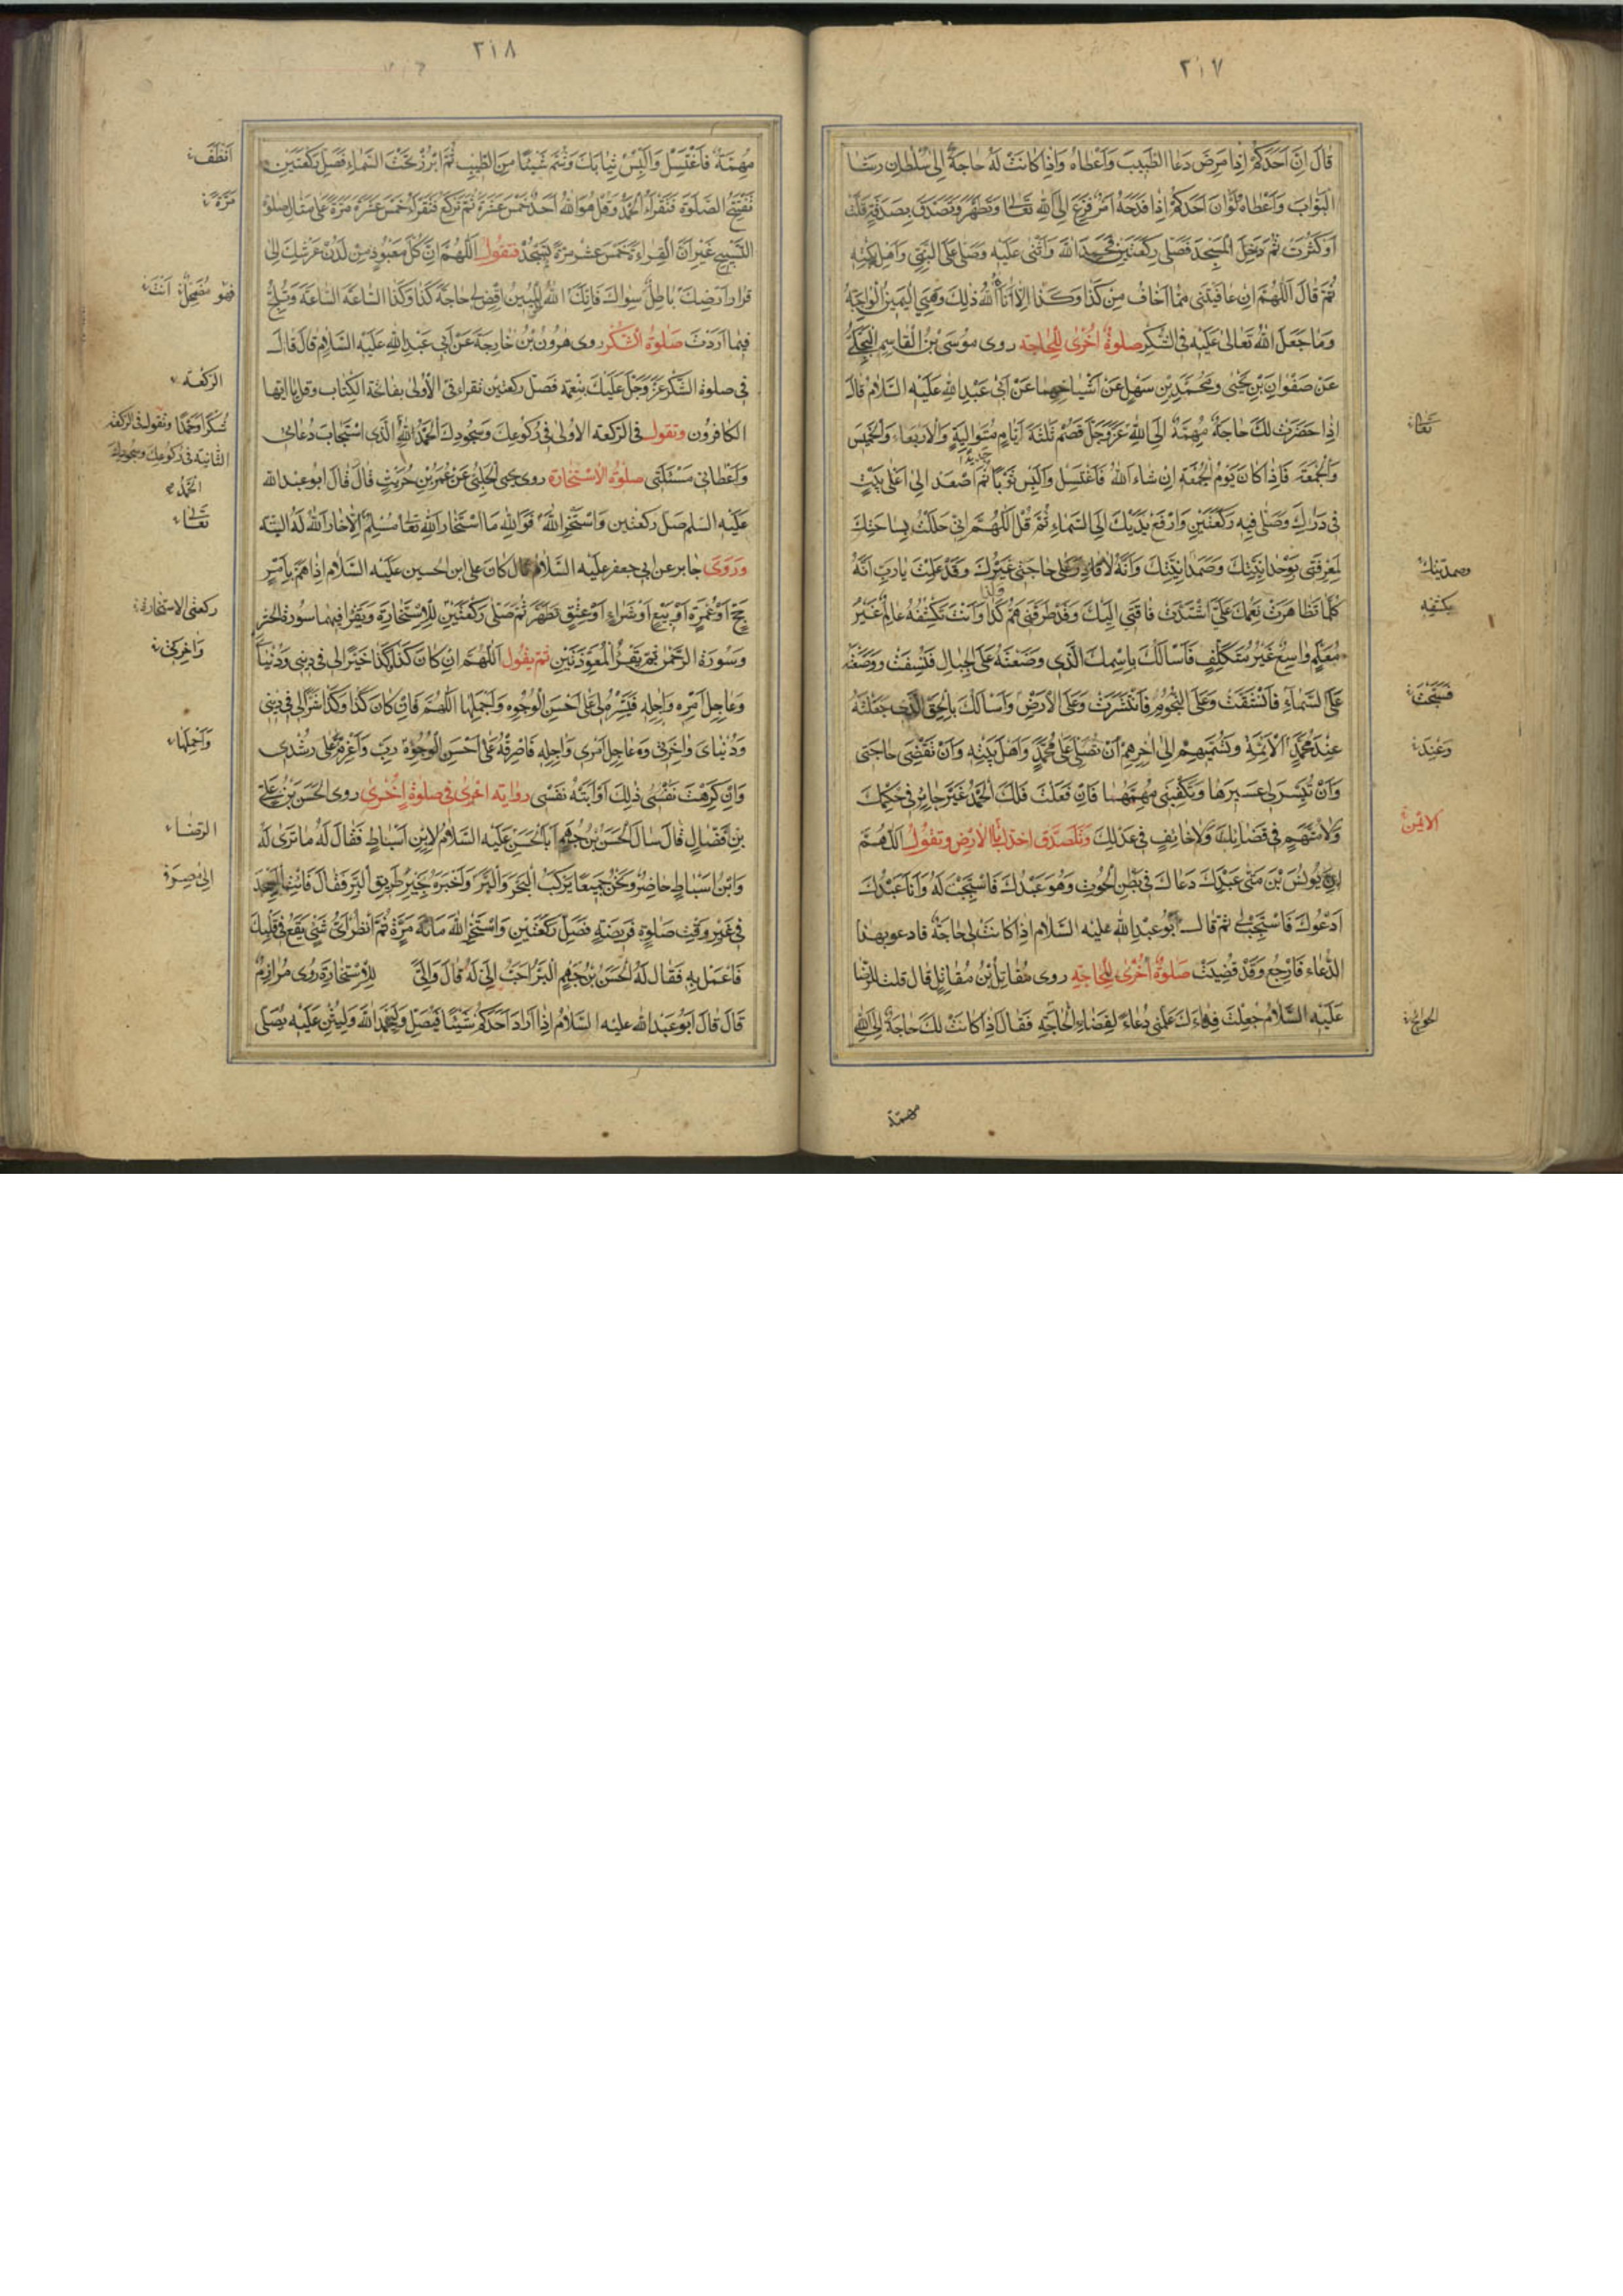 ٢١٧
قال ان احدكم اذا مرض دعا الطبيب واعطاه واذا كانت له حاجة الى سلطان رشا
البواب واعطاه ولو ان احدكم اذا فدحه امر فزع الى الله تعالى وتطهر وتصدق بصدقة قلت
او كثرت ثم دخل المسجد فصلى ركعتين فحمد الله واثنى عليه وصلى على النبي واهل بيته
ثم قال اللهم ان عافيتنى مما اخاف من كذا وكذا الا اتاه الله ذلك وهى اليمين الواجبة
وما جعل الله تعالى عليه فى الشكر صلوة اخرى للحاجة روى موسى بن القاسم البجلى
عن صفوان بن يحيى ومحمد بن سهل عن اشياخهما عن ابى عبد الله عليه السلام قال
اذا حضرت لك حاجة مهمة الى الله عز وجل فصم ثلثة ايام متوالية والاربعاء والخميس
والجمعة فاذا كان يوم الجمعة ان شاء الله فاغتسل والبس ثوبا جديدا ثم اصعد الى اعلى بيت
فى دارك وصل فيه ركعتين وارفع يديك الى السماء ثم قل اللهم انى حللت بساحتك
لمعرفتى بوحدانيتك وصمدانيتك وانه لا قادر على حاجتى غيرك وقد علمت يا رب انه
كلما تظاهرت نعمك على اشتدت فاقتى اليك وقد طرقنى هم كذا وكذا وانت تكشفه عالم غير
معلم واسع غير متكلف فاسألك باسمك الذى وضعته على الجبال فنسفت ووضعته
على السماء فانشقت وعلى النجوم فانتشرت وعلى الارض واسألك بالحق الذى جعلته
عند محمد الائمة وتسميهم الى اخرهم ان تصلى على محمد واهل بيته وان تقضى حاجتى
وان تيسر لى عسيرها وتكفينى مهمتها فان فعلت فلك الحمد غير جائر فى حكمك
ولا متهم فى قضائك ولا خائف فى عدلك وتلصق خدك بالارض وتقول اللهم
ان يونس بن متى عبدك دعاك فى بطن الحوت وهو عبدك فاستجبت له وانا عبدك
ادعوك فاستجب لى ثم قال ابو عبد الله عليه السلام اذا كانت لى حاجة فادعو بهذا
الدعاء فارجع وقد قضيت صلوة اخرى للحاجة روى مقاتل بن مقاتل قال قلت للرضا
عليه السلام جعلت فداءك علمنى دعاء لقضاء الحاجة فقال اذا كانت لك حاجة الى الله
مهمة
تعالى
وصمديتك
بكشفه
فسجت
وعند
الايمن
الحوائج
٢١٨
مهمة فاغتسل والبس ثيابك وشم شيئا من الطيب ثم ابرز تحت السماء فصل ركعتين
تفتتح الصلوة فتقراء الحمد وقل هو الله احد خمس عشرة ثم تركع فتقراء خمس عشرة مرة على مثال صلوة
التسبيح غير ان القراءة خمس عشر مرة ثم تسجد فتقول اللهم ان كل معبود من لدن عرشك الى
قرار ارضك باطل سواك فانك الله المبين اقض لى حاجة كذا وكذا الساعة الساعة وتلح
فيما اردت صلوة الشكر روى هرون بن خارجة عن ابى عبد الله عليه السلام قال قال
فى صلوة الشكر عز وجل عليك بنعمة فصل ركعتين تقراء فى الاولى بفاتحة الكتاب وقل يا ايها
الكافرون وتقول فى الركعه الاولى فى ركوعك وسجودك الحمد لله الذى استجاب دعائى
واعطانى مسئلتى صلوة الاستخارة روى يحيى الحلبى عن عمر بن حريث قال قال ابو عبد الله
عليه السلم صل ركعتين واستخر الله فو الله ما استخار الله تعا مسلم الا خار الله له البتة
وروى جابر عن ابى جعفر عليه السلام قال كان على ابن الحسين عليه السلام اذا هم بامر
حج او عمرة او بيع او شراء او عتق تطهر ثم صلى ركعتين للاستخارة ويقرا فيهما سورة الحشر
وسورة الرحمن ثم يقرأ المعوذتين ثم يقول اللهم ان كان كذا وكذا خيرا لى فى دينى ودنياى
وعاجل امره واجله فيسره لى على احسن الوجوه واجملها اللهم فان كان كذا وكذا شرا لى فى دينى
ودنياى واخرتى وعاجل امرى واجله فاصرفه على احسن الوجوه رب واعزم لى على رشدى
وان كرهت نفسى ذلك او ابته نفسى رواية اخرى فى صلوة اخرى روى الحسن بن على
بن فضال قال سال الحسن بن جهم ابا الحسن عليه السلام لابن اسباط فقال له ما ترى له
وابن اسباط حاضر ونحن جميعا يركب البحر والبر واخبره بخير طريق البر فقال فائت المسجد
فى غير وقت صلوة فريضة فصل ركعتين واستخر الله مائة مرة ثم انظر اى شئ يقع فى قلبك
فاعمل به فقال له الحسن بن جهم البر احب الى له قال والى للاستخارة روى مرازم
قال قال ابو عبد الله عليه السلام اذا اراد احدكم شيئا فليصل وليحمد الله وليثن عليه يصلى
انظف
مرة
فهو مضمحل انت
الركعة
شكرا وحمدا وتقول فى الركعة
الثانية فى ركوعك وسجودك
الحمد
تعالى
ركعتى الاستخارة
واخرتى
واجملها
الرضا
الى مصر